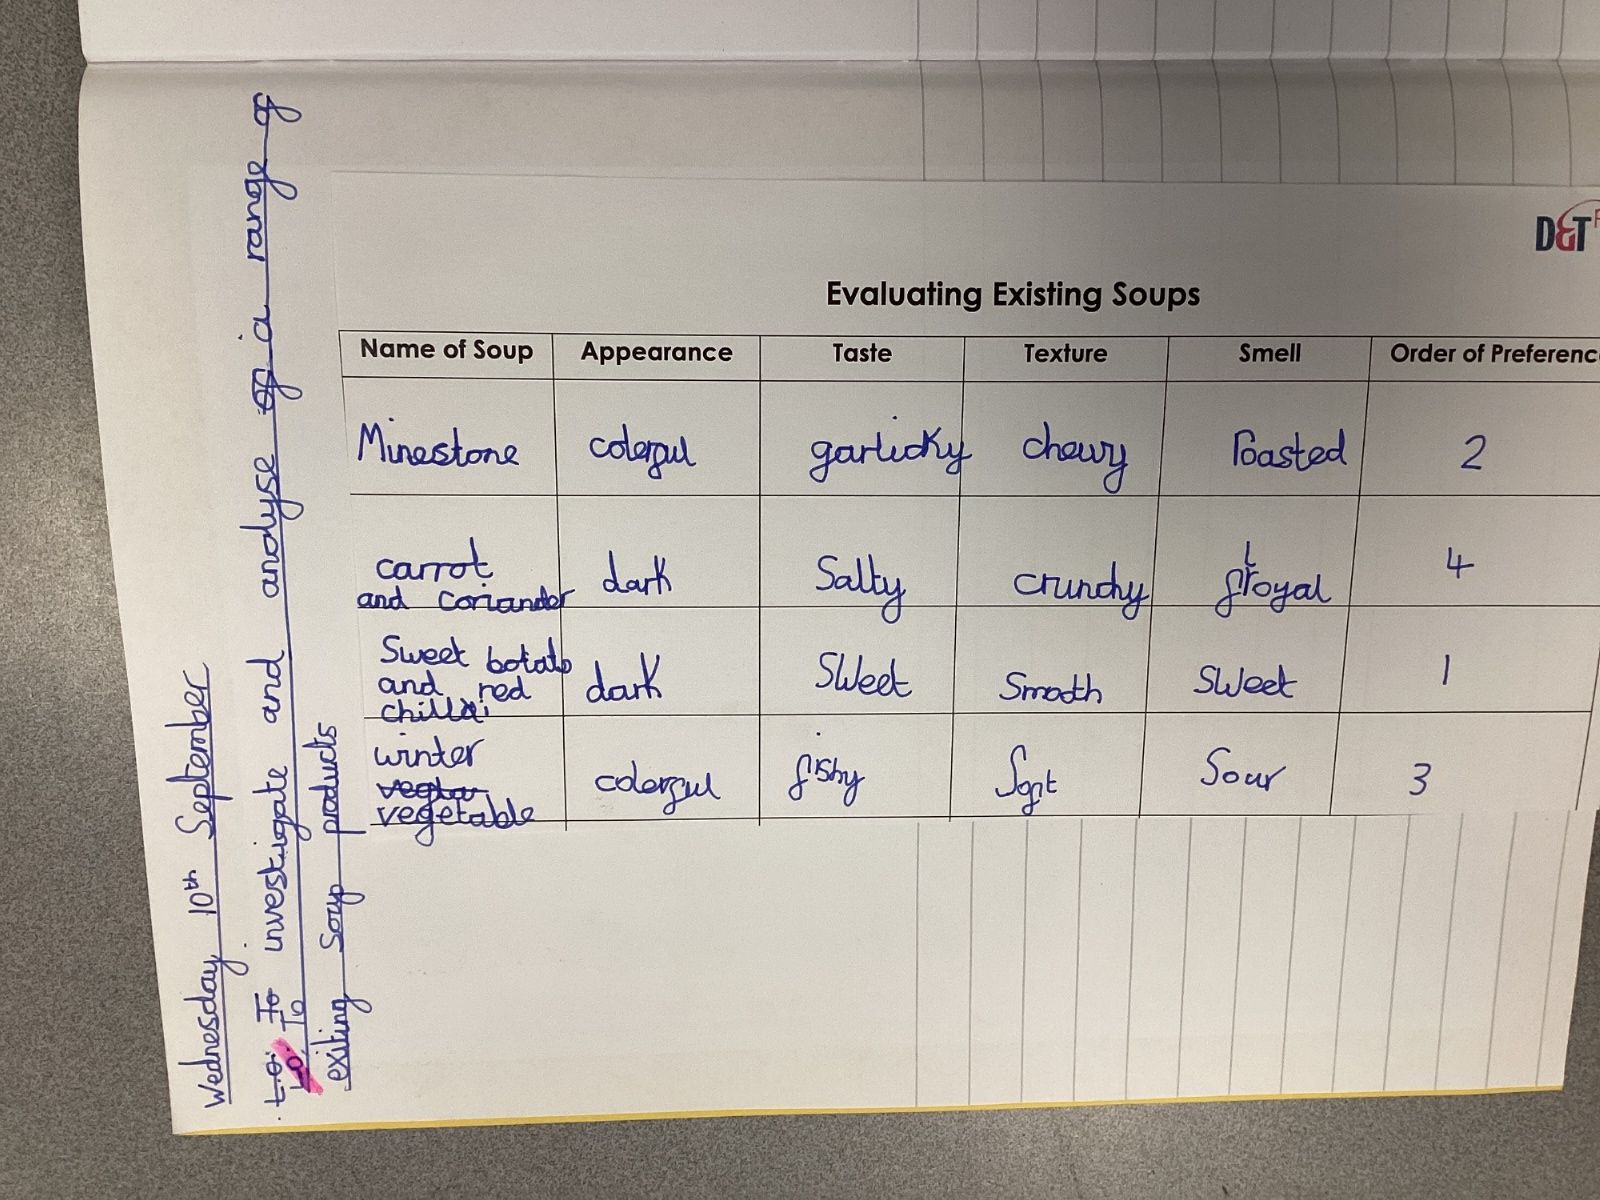 Wednesday 10th September
L.O. To
L.O. To investigate and analyse of a range of
existing soup products
D&T
Evaluating Existing Soups
Name of Soup Appearance Taste Texture Smell Order of Preferenc
Minestone colerful garlicky chewy Roasted 2
carrot
and coriander dark Salty crunchy 4
Sweet botato
and red
chillai dark Sweet Smooth Sweet 1
winter
vegta
vegetable colerful fishy Soft Sour 3